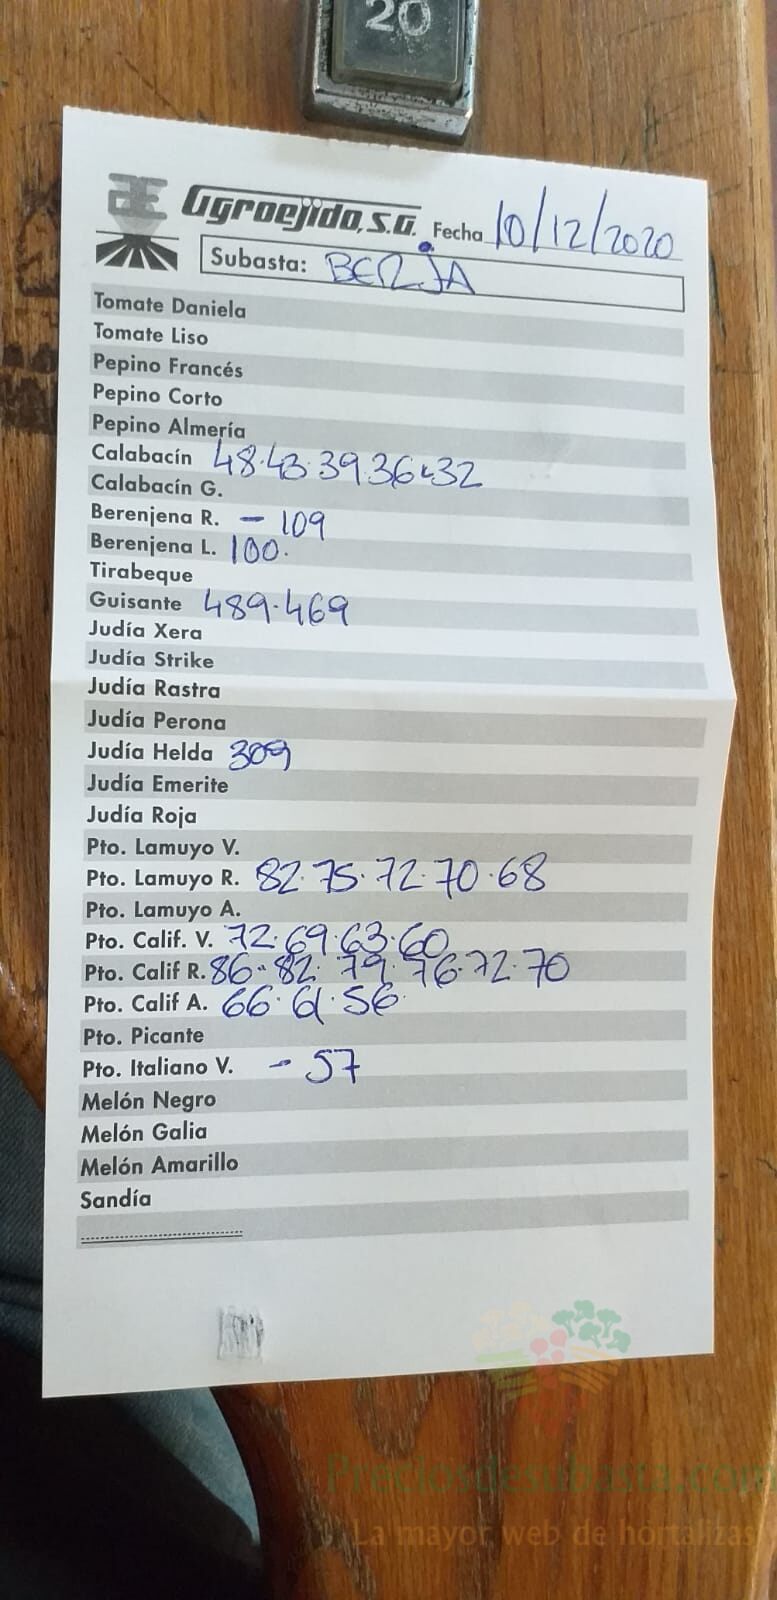 20
Agroejido, S.A. Fecha 10/12/2020
Subasta: BERJA
Tomate Daniela
Tomate Liso
Pepino Francés
Pepino Corto
Pepino Almería
Calabacín 48.43.39.36.32
Calabacín G.
Berenjena R. - 109
Berenjena L. 100.
Tirabeque
Guisante 489.469
Judía Xera
Judía Strike
Judía Rastra
Judía Perona
Judía Helda 309
Judía Emerite
Judía Roja
Pto. Lamuyo V.
Pto. Lamuyo R. 82.75.72.70.68
Pto. Lamuyo A.
Pto. Calif. V. 72.69.63.60
Pto. Calif R. 86.82.79.76.72.70
Pto. Calif A. 66.61.56.
Pto. Picante
Pto. Italiano V. - 57
Melón Negro
Melón Galia
Melón Amarillo
Sandía
Preciosdesubasta.com
La mayor web de hortalizas